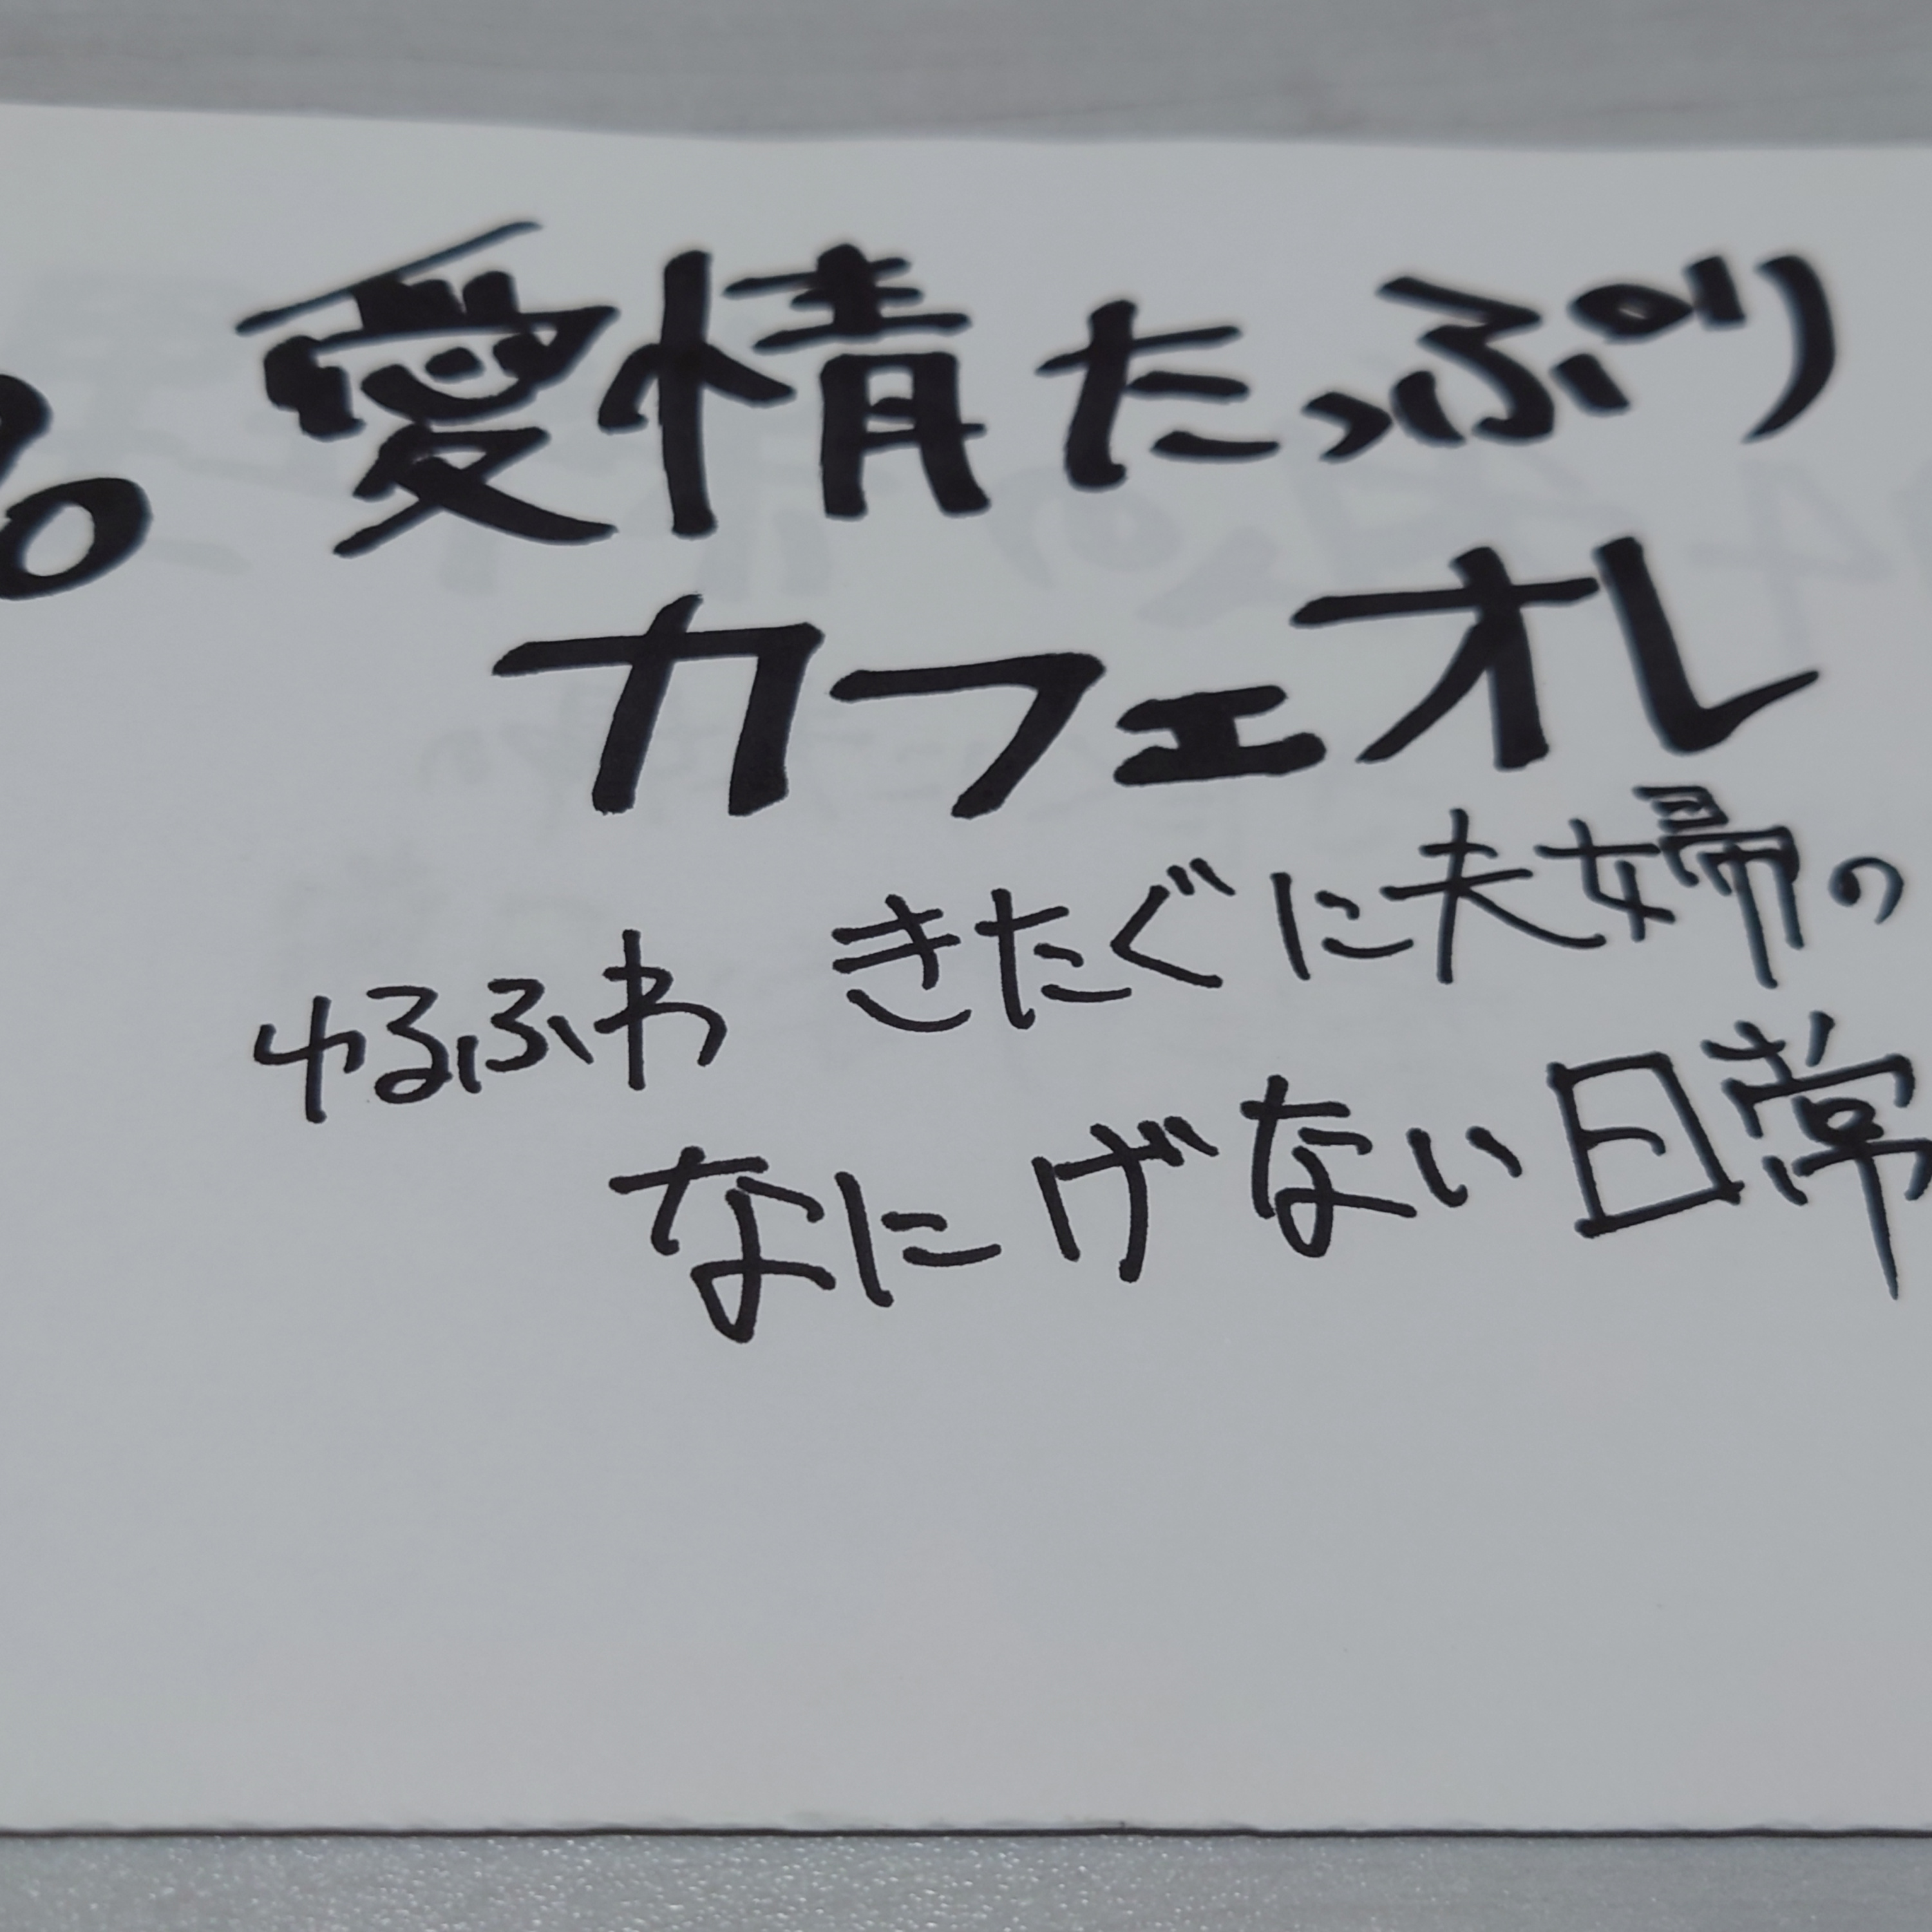 愛情たっぷり
カフェオレ
ゆるふわ きたぐに夫婦の
なにげない日常